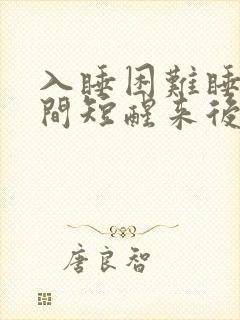 入睡困難睡
間短醒来後
唐良智